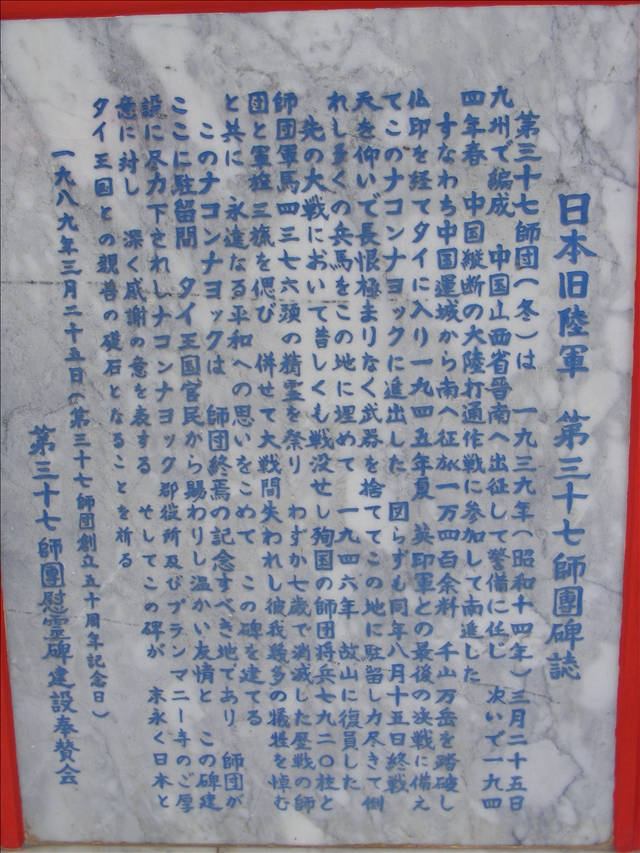 日本旧陸軍　第三十七師團碑誌
第三十七師団(冬)は　一九三九年(昭和十四年)三月二十五日
九州で編成　中国山西省晋南へ出征して警備に任じ　次いで一九四
四年春　中国縦断の大陸打通作戦に参加して南進した
すなわち中国運城から南へ征旅一万四百余粁　千山万岳を踏破し
仏印を経てタイに入り一九四五年夏　英印軍との最後の決戦に備え
てこのナコンナヨックに進出した　図らずも同年八月十五日終戦
天を仰いで長恨極まりなく武器を捨ててこの地に駐留し力尽きて倒
れし多くの兵馬をこの地に埋めて　一九四六年　故山に復員した
先の大戦において昔しくも戦没せし殉国の師団将兵七九二〇柱と
師団軍馬四三七六頭の精霊を祭り　わずか七歳で消滅した歴戦の師
団と軍旗三旒を偲び　併せて大戦間失われし彼我幾多の犠牲を悼む
と共に　永遠なる平和への思いをこめて　この碑を建てる
このナコンナヨックは　師団終焉の記念すべき地であり　師団が
ここに駐留間　タイ王国官民から賜わりし温かい友情と　この碑建
設に尽力下されしナコンナヨック郡役所及びプランマニー寺のご厚
意に対し　深く感謝の意を表する　そしてこの碑が　末永く日本と
タイ王国との親善の礎石となることを祈る
一九八九年三月二十五日(第三十七師団創立五十周年記念日)
第三十七師團慰霊碑建設奉賛会